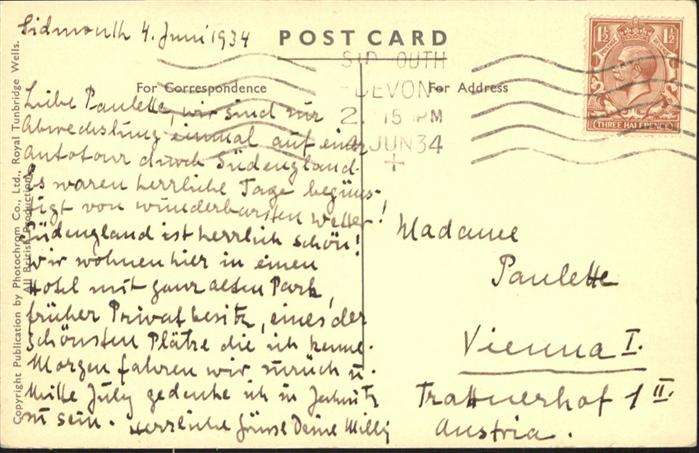 Sidmouth 4. Juni 1934
POST CARD
SIDMOUTH
DEVON
2 15 PM
JUN 34
THREE HALFPENCE
For Correspondence
For Address
Liebe Paulette, wir sind zur
Abwechslung einmal auf einer
Autotour durch Südengland.
Es waren herrliche Tage begüns-
tigt von wunderbarsten Wetter!
Südengland ist herrlich schön!
Wir wohnen hier in einen
Hotel mit ganz alten Park,
früher Privatbesitz, eines der
schönsten Plätze die ich kenne.
Morgen fahren wir zurück u.
Mitte July gedenke ich in
zu sein. Herzliche Grüsse Deine Willy
Madame
Paulette
Vienna I.
Trattnerhof 1 II.
Austria.
Copyright Publication by Photochrom Co., Ltd., Royal Tunbridge Wells.
All British Production.